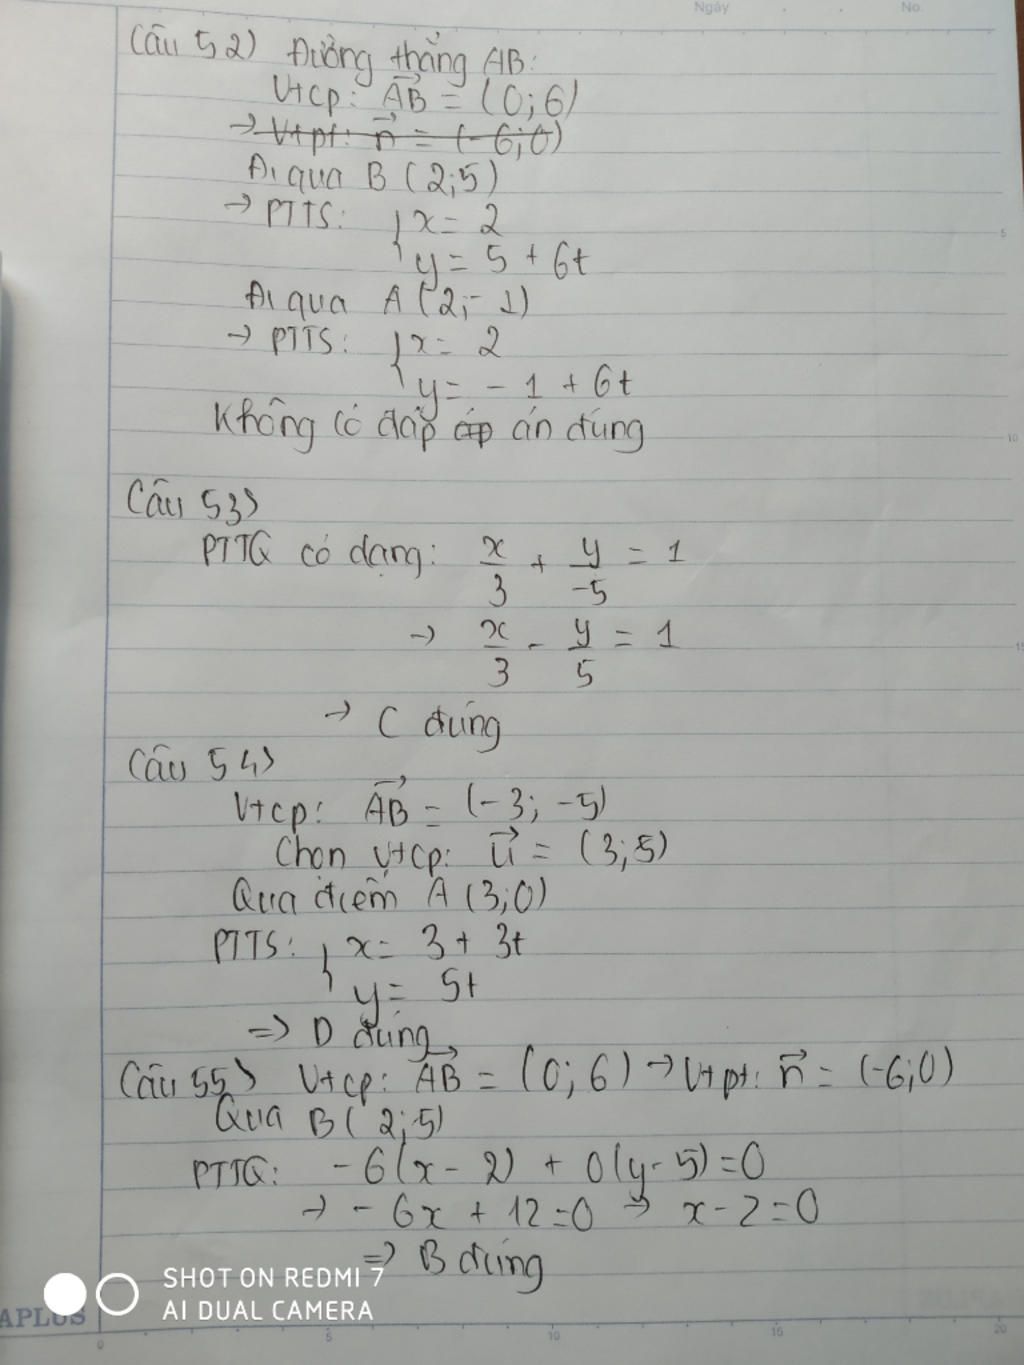 Ngày . . No.
Câu 52) Đường thẳng AB:
Vtcp: AB→ = (0;6)
→ Vtpt: n→ = (-6;0)
Đi qua B (2;5)
→ PTTS: { x = 2
y = 5 + 6t
Đi qua A (2;-1)
→ PTTS: { x = 2
y = - 1 + 6t
Không có đáp áp án đúng
Câu 53)
PTTQ có dạng: x/3 + y/-5 = 1
→ x/3 - y/5 = 1
→ C đúng
Câu 54)
Vtcp: AB→ = (-3; -5)
Chọn vtcp: u→ = (3;5)
Qua điểm A (3;0)
PTTS: { x = 3 + 3t
y = 5t
=> D đúng
Câu 55) Vtcp: AB→ = (0; 6) → Vtpt: n→ = (-6;0)
Qua B( 2;5)
PTTQ: -6(x-2) + 0(y-5)=0
→ -6x + 12=0 → x-2=0
=> B đúng
SHOT ON REDMI 7
AI DUAL CAMERA
APLUS
5
10
15
0 5 10 15 20